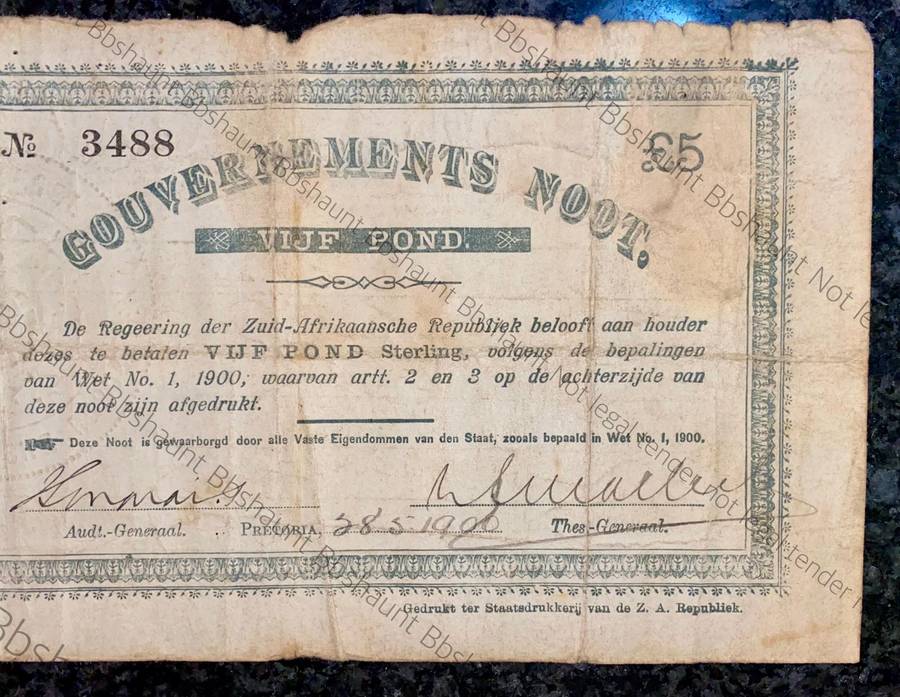 № 3488
£5
GOUVERNEMENTS NOOT.
VIJF POND.
De Regeering der Zuid-Afrikaansche Republiek belooft aan houder
dezes te betalen VIJF POND Sterling, volgens de bepalingen
van Wet No. 1, 1900, waarvan artt. 2 en 3 op de achterzijde van
deze noot zijn afgedrukt.
Deze Noot is gewaarborgd door alle Vaste Eigendommen van den Staat, zooals bepaald in Wet No. 1, 1900.
Audt.-Generaal. PRETORIA, 28 5 1900 Thes.-Generaal.
Gedrukt ter Staatsdrukkerij van de Z. A. Republiek.
Bbshaunt Bbshaunt Bbshaunt Bbshaunt Not legal tender not legal tender